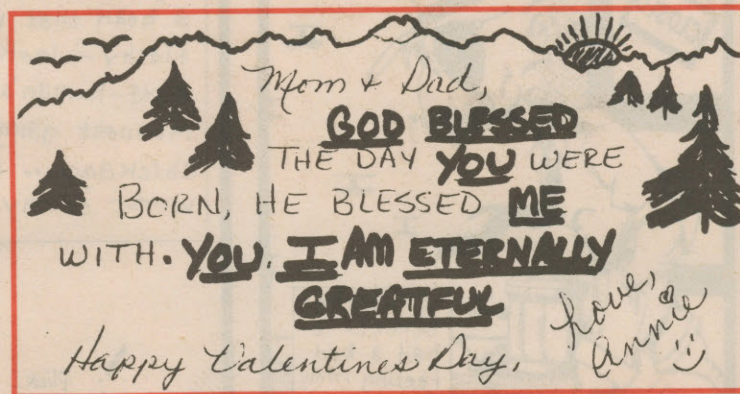 Mom + Dad,
GOD BLESSED
THE DAY YOU WERE
BORN, HE BLESSED ME
WITH. YOU. I AM ETERNALLY
GREATFUL
Happy Valentines Day,
Love,
Annie